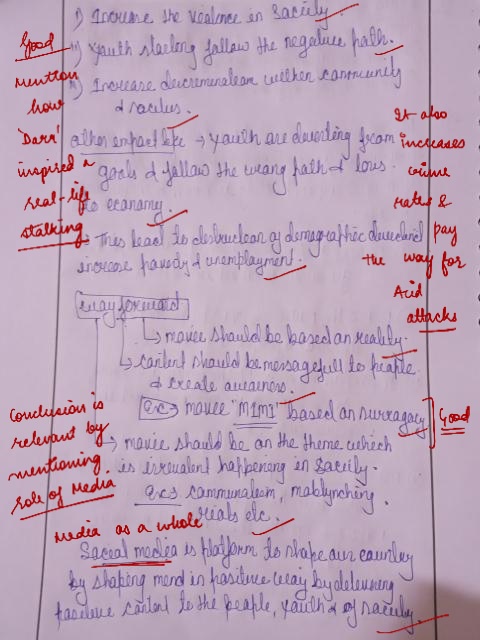 i) Increase the violence in Society
ii) Youth starting follow the negative path.
iii) Increase descremenalism within community
& racism.
other impact like → Youth are diverting from
goals & follow the wrong path & loss
to economy.
This lead to destruction of demographic dividend
increase poverty & unemployment.
way forward
↳ movie should be based on reality.
↳ content should be messagefull to people
& create awareness.
Ex movie "MIMI" based on surragacy
→ movie should be on the theme which
is irrevalent happening in Society.
Ex communalism, moblynching
riots etc.
Social media is platform to shape our country
by shaping mend in positive way by delevering
positive content to the people, youth & of society.
Good
mention
how
'Darr'
inspired a
real-life
stalking
It also
increases
crime
rates &
pay
the way for
Acid
attacks
Good
Conclusion is
relevant by
mentioning
role of Media
Media as a whole